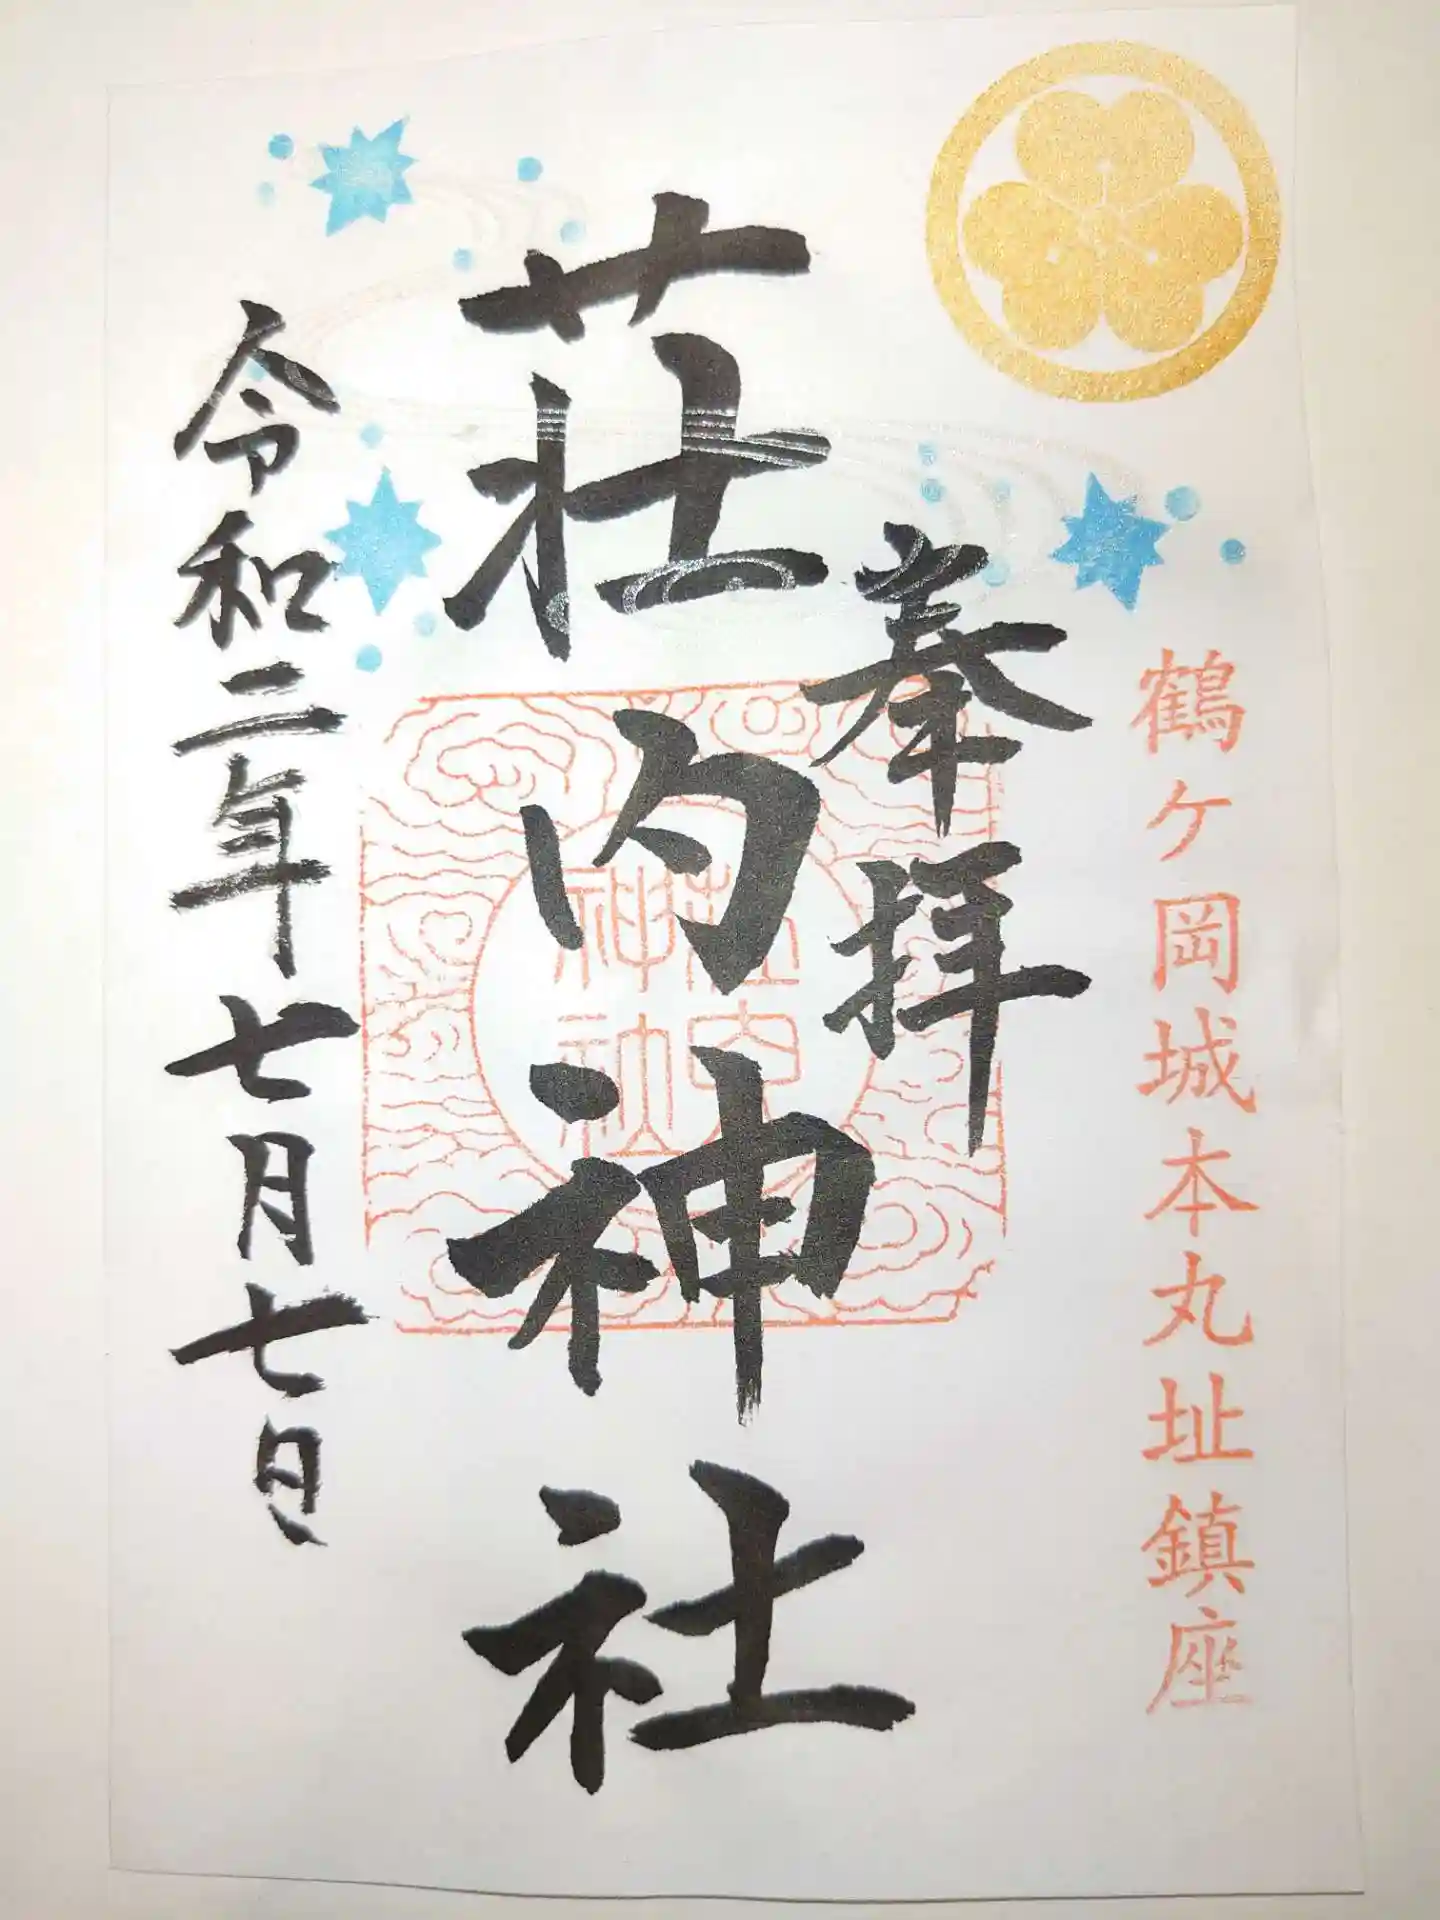 鶴ケ岡城本丸址鎮座
奉拝
荘内神社
荘内
神社
令和二年七月七日